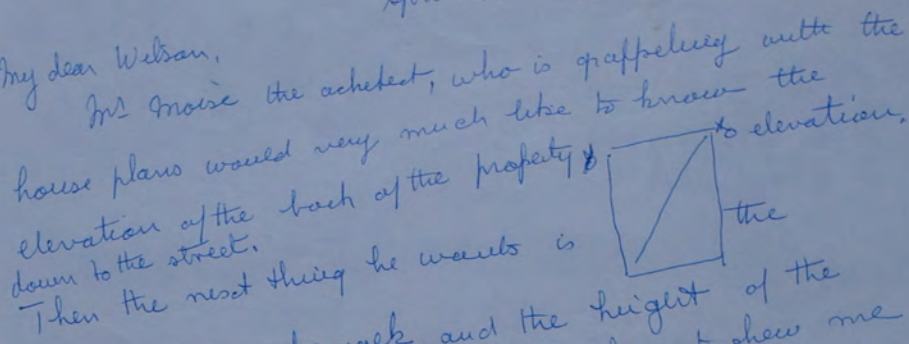 My dear Wilson,
Mr Moise the achetect, who is grappeling with the
house plans would very much like to know the
elevation of the back of the property elevation,
down to the street.
Then the next thing he wants is the
and the height of the
shew me